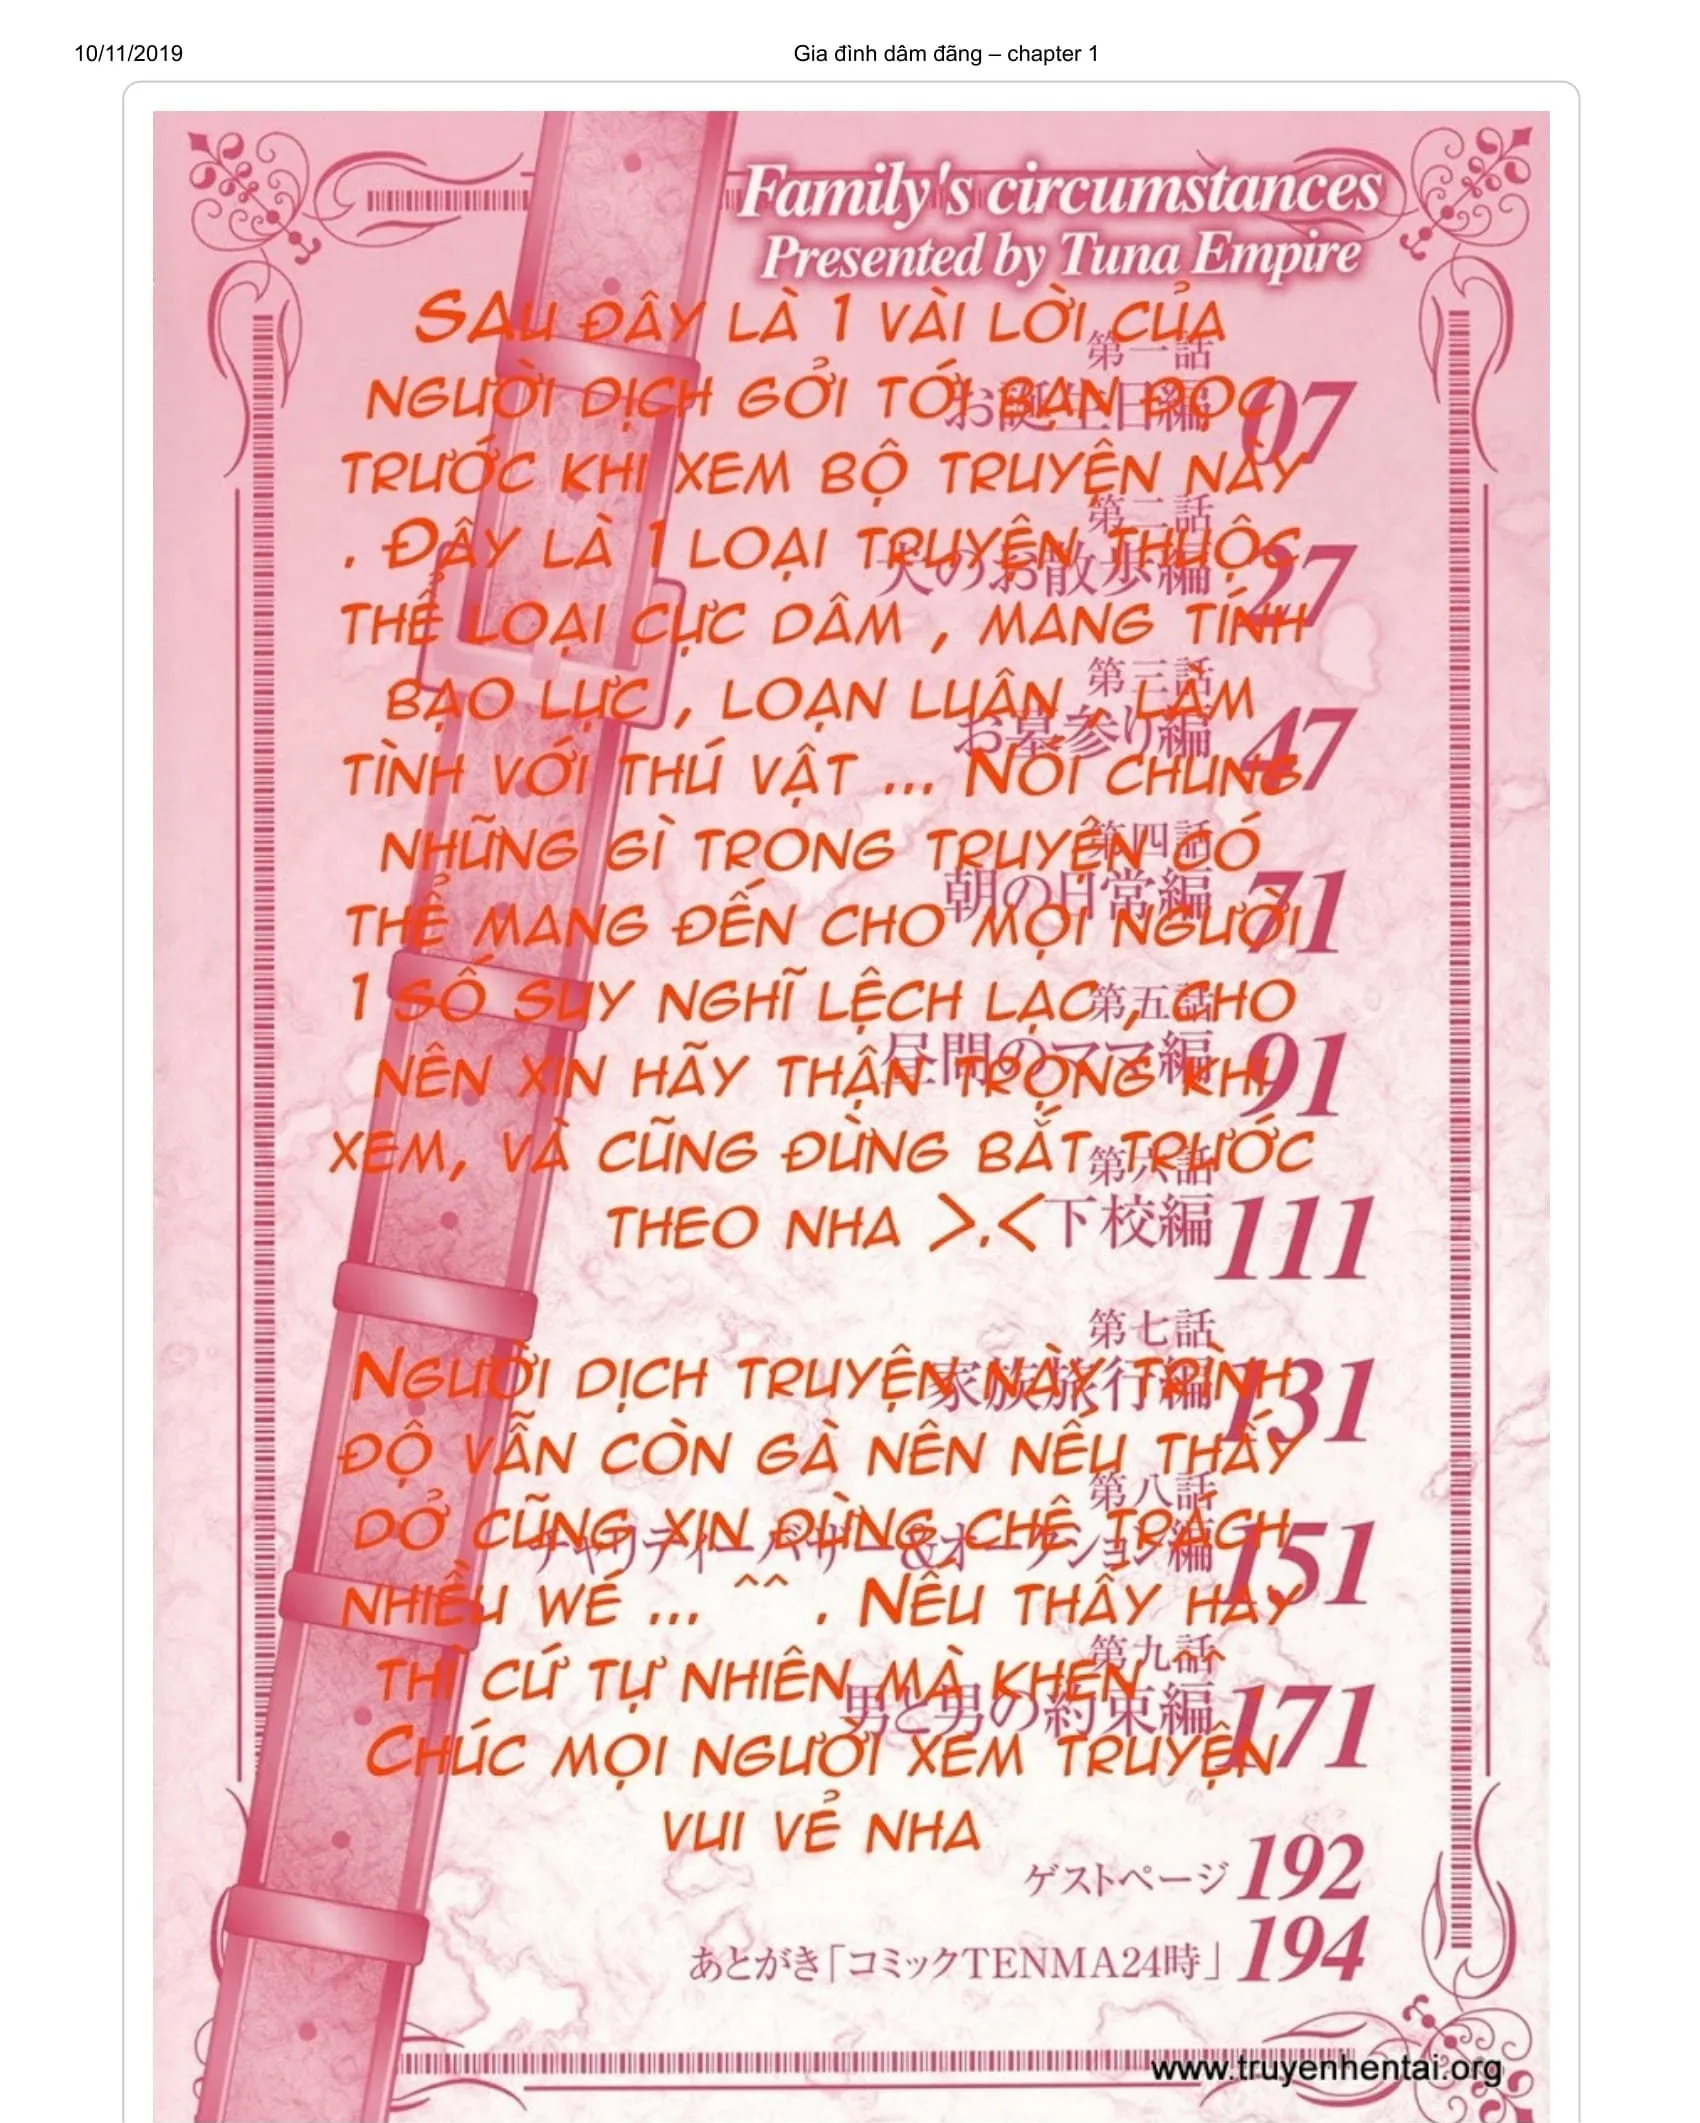 10/11/2019
Gia đình dâm đãng – chapter 1
Family's circumstances
Presented by Tuna Empire
SAU ĐÂY LÀ 1 VÀI LỜI CỦA
NGƯỜI DỊCH GỞI TỚI BẠN ĐỌC
TRƯỚC KHI XEM BỘ TRUYỆN NÀY
. ĐÂY LÀ 1 LOẠI TRUYỆN THUỘC
THỂ LOẠI CỰC DÂM , MANG TÍNH
BẠO LỰC , LOẠN LUÂN , LÀM
TÌNH VỚI THÚ VẬT ... NÓI CHUNG
NHỮNG GÌ TRONG TRUYỆN CÓ
THỂ MANG ĐẾN CHO MỌI NGƯỜI
1 SỐ SUY NGHĨ LỆCH LẠC , CHO
NÊN XIN HÃY THẬN TRỌNG KHI
XEM, VÀ CŨNG ĐỪNG BẮT TRƯỚC
THEO NHA >.<
NGƯỜI DỊCH TRUYỆN NÀY TRÌNH
ĐỘ VẪN CÒN GÀ NÊN NẾU THẤY
DỞ CŨNG XIN ĐỪNG CHÊ TRÁCH
NHIỀU WÉ ... ^^ . NẾU THẤY HAY
THÌ CỨ TỰ NHIÊN MÀ KHEN ^^
CHÚC MỌI NGƯỜI XEM TRUYỆN
VUI VẺ NHA
第一話
お誕生日編 07
第二話
犬のお散歩編 27
第三話
お墓参り編 47
第四話
朝の日常編 71
第五話
昼間のママ編 91
第六話
下校編 111
第七話
家族旅行編 131
第八話
チャリティーバザー&オークション編 151
第九話
男と男の約束編 171
ゲストページ 192
あとがき「コミックTENMA24時」 194
www.truyenhentai.org